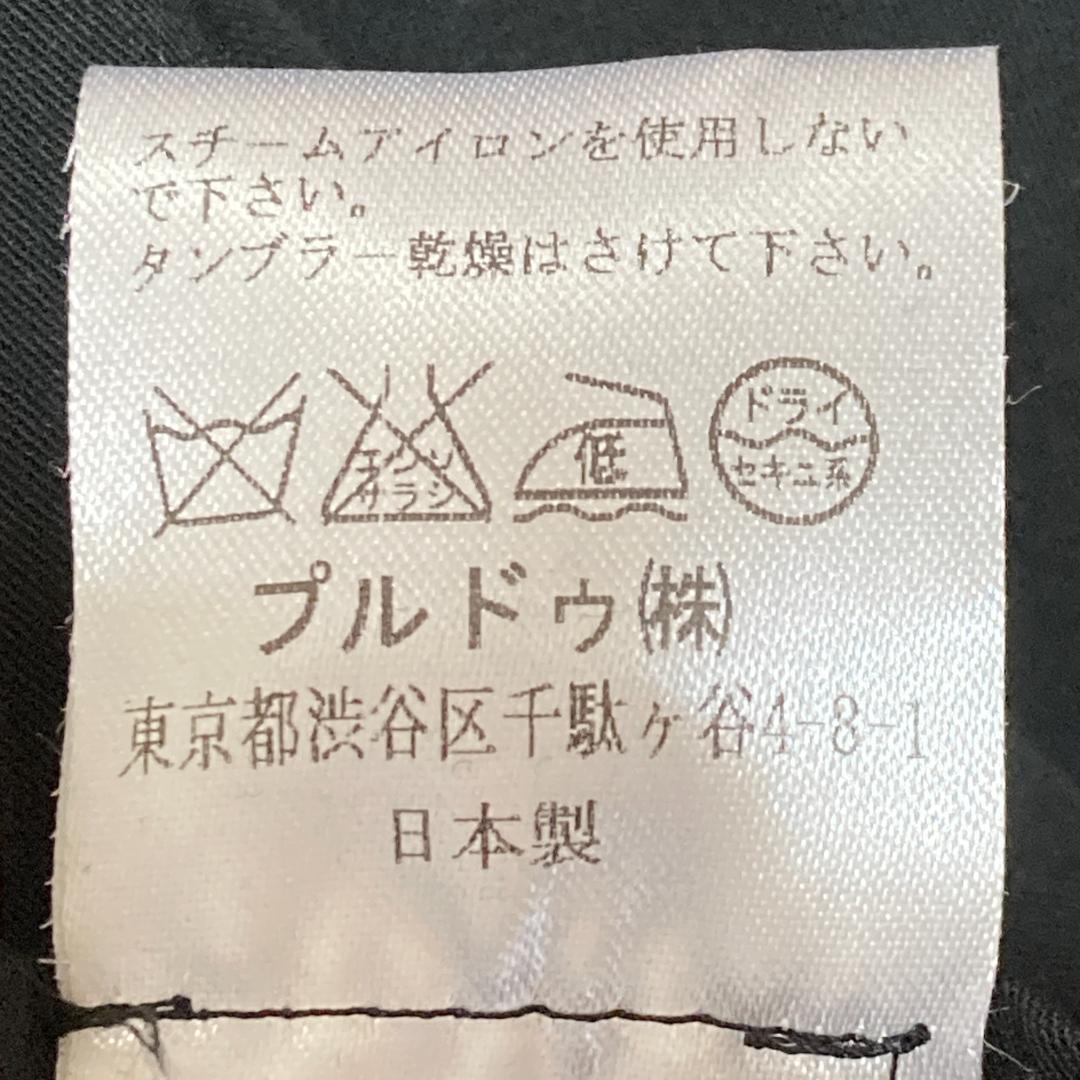 スチームアイロンを使用しない
で下さい。
タンブラー乾燥はさけて下さい。
エンソ
サラシ
低
ドライ
セキユ系
プルドゥ㈱
東京都渋谷区千駄ヶ谷4-3-1
日本製